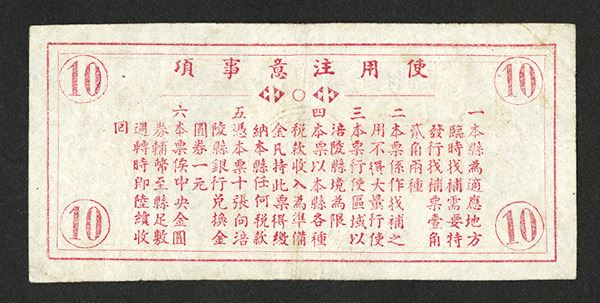 10
使用注意事項
10
一本縣為適應地方
臨時找補需要特
發行找補票壹角
貳角兩種
二本票係作找補之
用不得大量行使
三本票行使區域以
涪陵縣境為限
四本票以本縣各種
稅款收入為準備
金凡持此票得繳
納本縣任何稅款
五憑本票十張向涪
陵縣銀行兌換金
圓券一元
六本票俟中央金圓
券輔幣至縣足敷
週轉時即陸續收
回
10
10